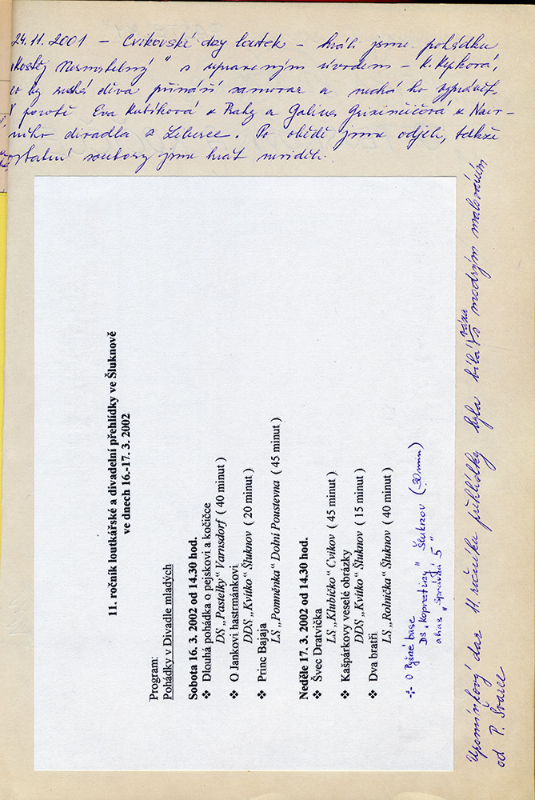 24.11.2001 – Cvikovské dny loutek – hráli jsme pohádku
„Kostěj Nesmrtelný" s upraveným úvodem – K. Kepková,
co by ruská děva přináší samovar a nechá ho vyprávět.
V porotě Eva z Prahy a Galina z Naiv-
ního divadla z Liberce. Po obědě jsme odjeli, takže
ostatní soubory jsme hrát neviděli.
11. ročník loutkářské a divadelní přehlídky ve Šluknově
ve dnech 16.-17. 3. 2002
Program:
Pohádky v Divadle mladých
Sobota 16. 3. 2002 od 14.30 hod.
❖ Dlouhá pohádka o pejskovi a kočičce
DS „Pastelky" Varnsdorf ( 40 minut )
❖ O Jankovi hastrmánkovi
DDS „Kvítko" Šluknov ( 20 minut )
❖ Princ Bajaja
LS „Pomněnka" Dolní Poustevna ( 45 minut )
Neděle 17. 3. 2002 od 14.30 hod.
❖ Švec Dratvička
LS „Klubíčko" Cvikov ( 45 minut )
❖ Kašpárkovy veselé obrázky
DDS „Kvítko" Šluknov ( 15 minut )
❖ Dva bratři
LS „Rolnička" Šluknov ( 40 minut )
❖ O Pyšné base
DS „Kopretiny" Šluknov (30 min)
alias „Správní 5"
Upomínkový dar 11. ročníku přehlídky byla bílá váza s modrým malováním
od P. Švarce